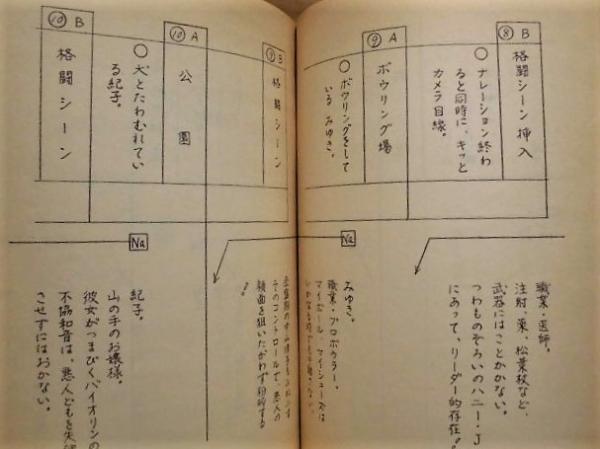 ⑧B
格闘シーン挿入
○ナレーション終わ
ると同時に、キッと
カメラ目線。
⑨A
ボウリング場
○ボウリングをして
いるみゆき。
職業・医師。
注射、薬、松葉杖など、
武器にはことかかない。
つわものぞろいのハニー・J
にあって、リーダー的存在!
Na
みゆき。
職業・プロボウラー。
マイボール、マイシューズは
そのコントロールで、悪人の
顔面を狙いたがわず
⑨B
格闘シーン
⑩A
公園
○犬とたわむれてい
る紀子。
⑩B
格闘シーン
Na
紀子。
山の手のお嬢様。
彼女がつまびくバイオリンの
不協和音は、悪人どもを失
させずにはおかない。